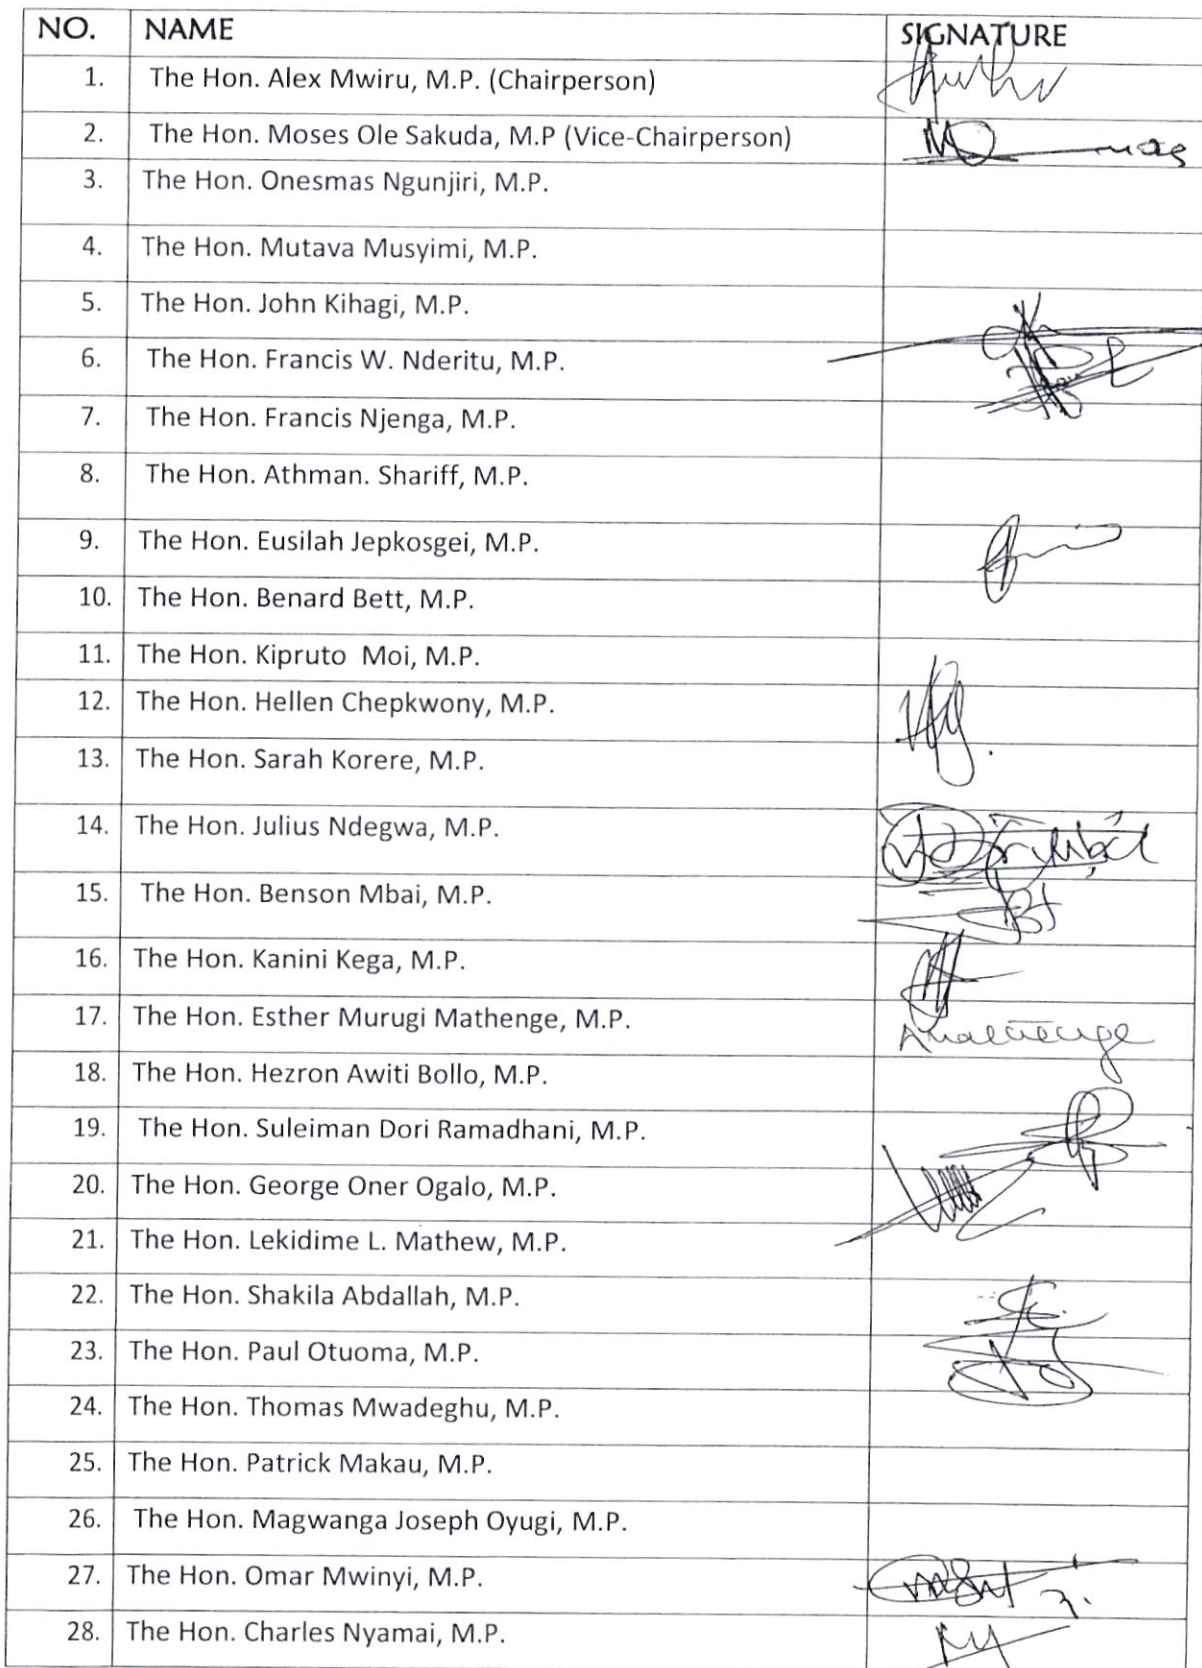 NO. NAME SIGNATURE
1. The Hon. Alex Mwiru, M.P. (Chairperson)
2. The Hon. Moses Ole Sakuda, M.P (Vice-Chairperson)
3. The Hon. Onesmas Ngunjiri, M.P.
4. The Hon. Mutava Musyimi, M.P.
5. The Hon. John Kihagi, M.P.
6. The Hon. Francis W. Nderitu, M.P.
7. The Hon. Francis Njenga, M.P.
8. The Hon. Athman. Shariff, M.P.
9. The Hon. Eusilah Jepkosgei, M.P.
10. The Hon. Benard Bett, M.P.
11. The Hon. Kipruto Moi, M.P.
12. The Hon. Hellen Chepkwony, M.P.
13. The Hon. Sarah Korere, M.P.
14. The Hon. Julius Ndegwa, M.P.
15. The Hon. Benson Mbai, M.P.
16. The Hon. Kanini Kega, M.P.
17. The Hon. Esther Murugi Mathenge, M.P.
18. The Hon. Hezron Awiti Bollo, M.P.
19. The Hon. Suleiman Dori Ramadhani, M.P.
20. The Hon. George Oner Ogalo, M.P.
21. The Hon. Lekidime L. Mathew, M.P.
22. The Hon. Shakila Abdallah, M.P.
23. The Hon. Paul Otuoma, M.P.
24. The Hon. Thomas Mwadeghu, M.P.
25. The Hon. Patrick Makau, M.P.
26. The Hon. Magwanga Joseph Oyugi, M.P.
27. The Hon. Omar Mwinyi, M.P.
28. The Hon. Charles Nyamai, M.P.